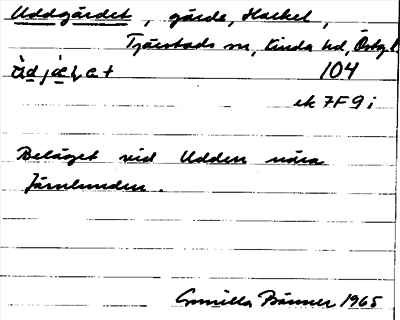 Uddgärdet, gärde, Hackel,
Tjärstads sn, Kinda hd, Östg.l.
104
ek 7F9i
Beläget vid Udden nära
Järnlunden.
Gunilla Bänner 1965